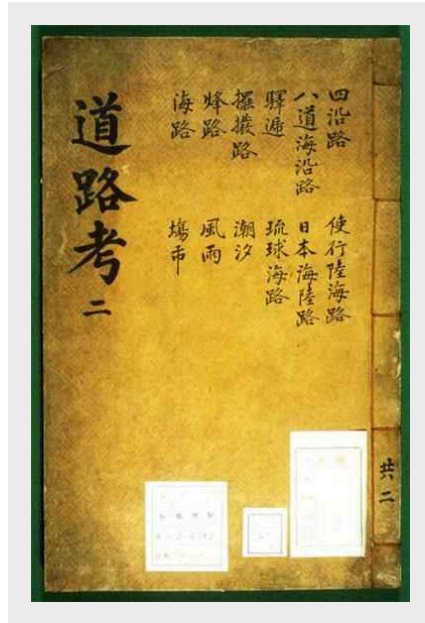 四沿路
八道海沿路
驛遞
擺撥路
烽路
海路
使行陸海路
日本海陸路
琉球海路
潮汐
風雨
塲市
道路考二
共二